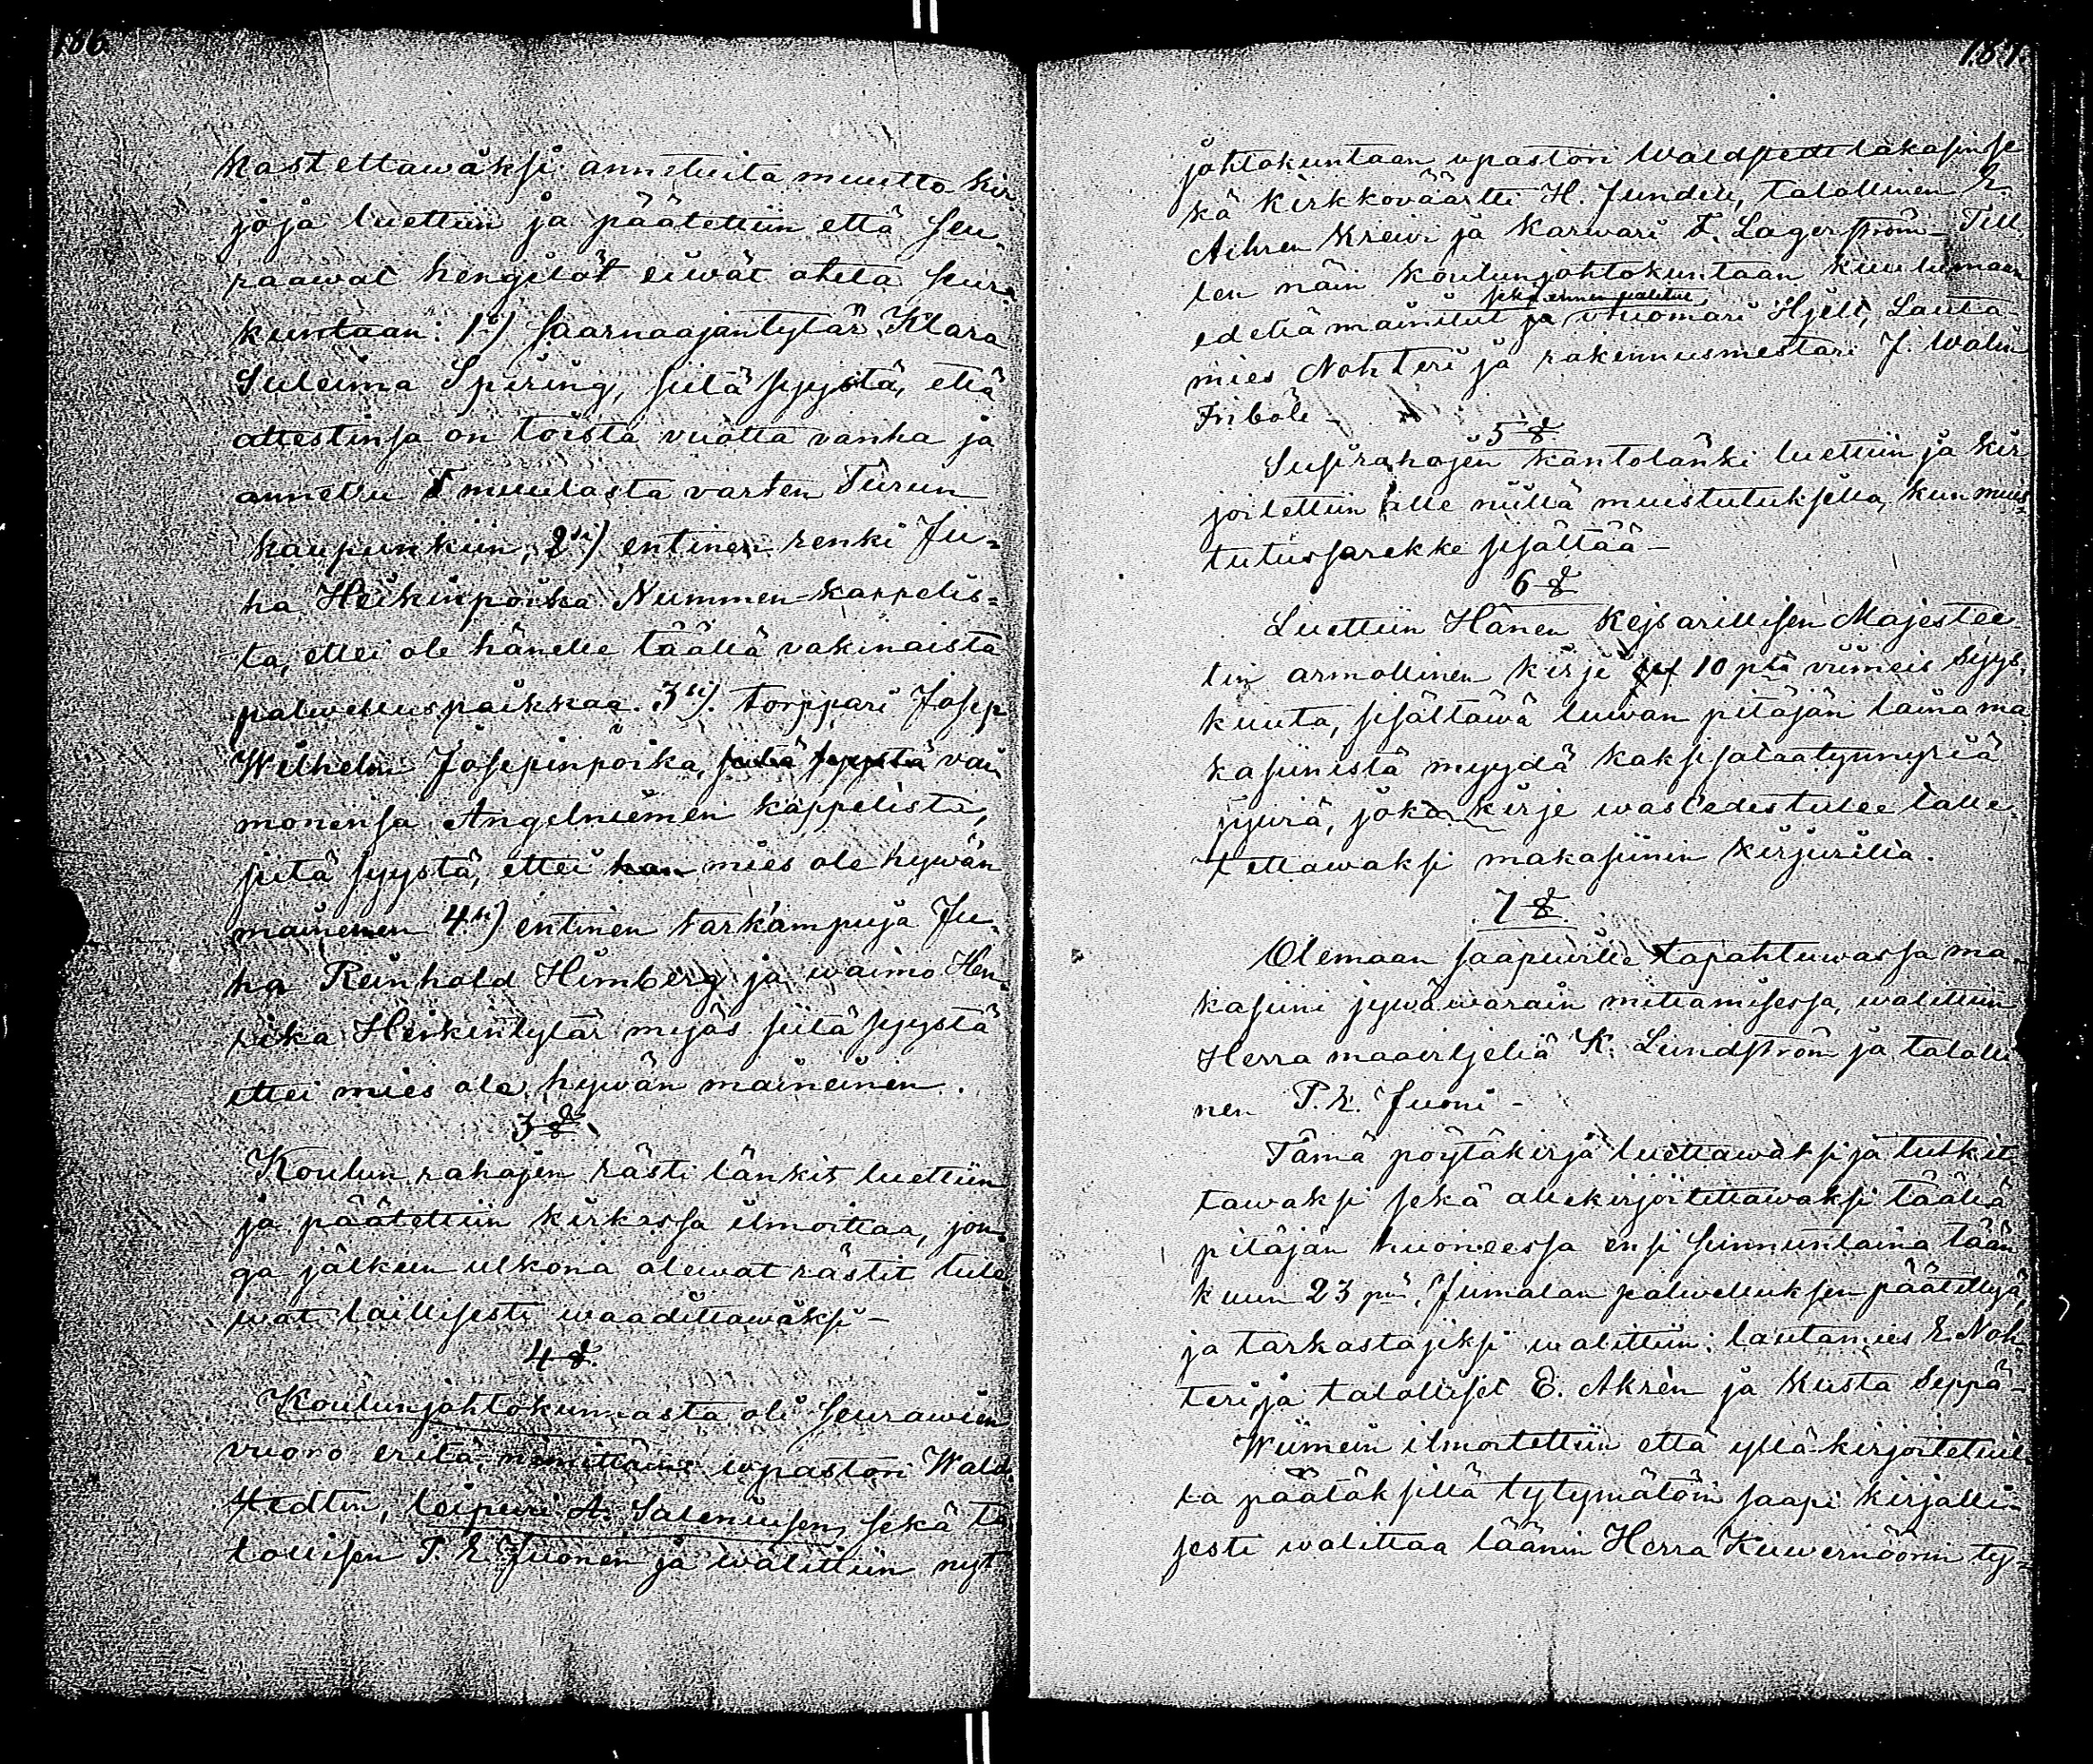 186
kastettawaksi annetuita muutto kir
joja luettiin ja päätettiin että seu-
raawat hengilöt eiwät oteta seura
kuntaan: 1o) saarnaajantytär Klara
Suleima Spiring, siitä syystä, että
attestinsa on toista vuotta vanha ja
annettu muulasta varten Turun
kaupunkiin, 2si) entinen renki Ju=
ha Heikinpoika Nummen kappelis=
ta, ettei ole hänelle täällä vakinaista
palwelluspaikkaa. 3si). torppari Josep
Wilhelm Josepinpoika, siitä syystä vai
monensa Angelniemen kappelista,
siitä syystä, ettei han mies ole hywän
maineinen 4si) entinen tarkampuja Ju-
ha Reinhold Himberg ja waimo Hen-
rika Heikintytär myös siitä syystä
ettei mies ole hywän maineinen.
3 §.
Koulun rahojen rästi länkit luettiin
ja päätettiin kirkossa ilmoittaa, jon-
ga jälkeen ulkona olewat rästit tule
wat laillisesti waadittawaksi -
4 §.
Koulunjohtokunnasta oli seurawien
vuoro eritä, nimittäin wpastori Wald-
stedtin, leipuri A. Saleniusen, sekä ta
lollisen P. E. Juonen ja walittiin nyt
187.
johtokuntaan vpastori Waldstedt takasin se
kä kirkkoväärtti H. Jundell, talollinen E.
Aihren Kreivi ja karwari F. Lagerström - Täl
len näin koulunjohtokuntaan kuulumaan
sekä ennen walitut
edellä mainitut ja vtuomari Hjelt, Lauta-
mies Nohteri ja rakennusmestari J. Walin
Friböle -
5 §.
Susirahojen kantolänki luettiin ja kir
joitettiin alle niillä muistutuksilla, kun muis=
tutussarekke sisältää -
6 §
Luettiin Hänen Kejsarillisen Majestee
tin armollinen kirje 10 ptä viimeis Syys-
kuuta, sisältäwä luwan pitäjän laina ma
kasiinistä myydä kaksisataatynnyriä
jywiä, joka kirje wastedes tulee talle-
tettawaksi makasiinin kirjurilla.
7 §.
Olemaan saapuwilla tapahtuwassa ma-
kasiini jywäwarain mittamisessa, walittiin
Herra maawiljeliä K. Lundström ja talolli
nen P. E. Juoni -
Tämä pöytäkirja luettawaksi ja tutkit
tawaksi sekä allekirjoitettawaksi täällä
pitäjän huoneessa ensi sunnuntaina tään
kuun 23 pnä, Jumalan palwelluksen päätettyä,
ja tarkastajiksi walittiin: lautamies E. Noh-
teri, ja talolliset E. Akrèn ja Kusta Seppä -
Wiimein ilmoitettiin että yllä kirjoitetuil-
la päätöksillä tytymätöin saapi kirjalli-
sesti walittaa läänin Herra Kuwernöörin ty=